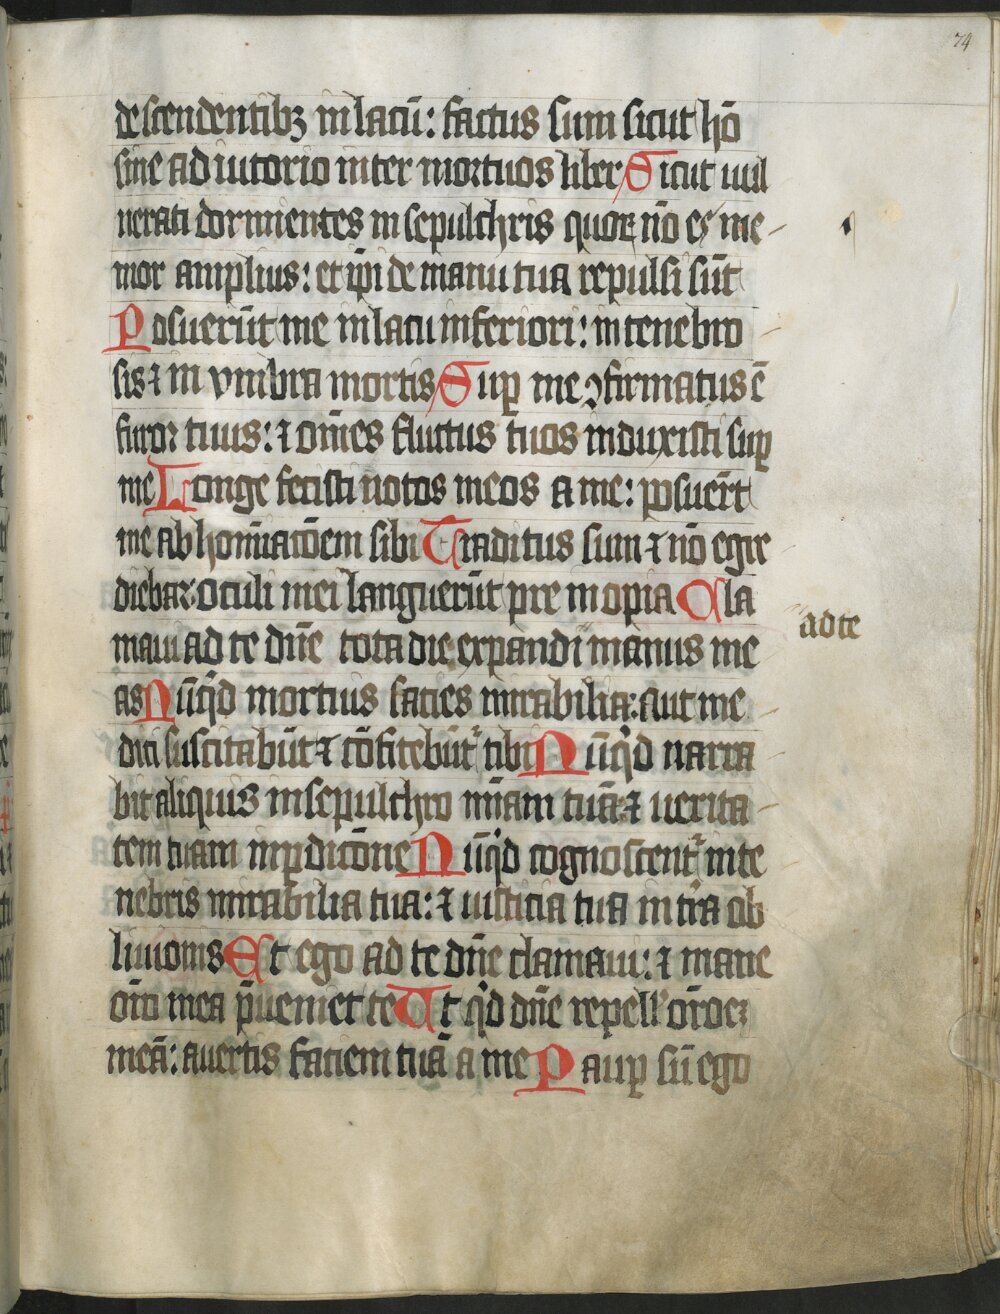 74
descendentibꝫ in lacū: factus sum sicut hō
sine adiutorio inter mortuos liber Sicut uul
nerati dormientes in sepulchris quoꝝ nō es me-
mor amplius: et ip̄i de manu tua repulsi sūt
Posuerūt me in lacu inferiori: in tenebro
sis ⁊ in vmbra mortis Suꝑ me ꝯfirmatus ē
furor tuus: ⁊ om̄es fluctus tuos induxisti suꝑ
me Longe fecisti notos meos a me: posuer̄t
me abhomīatōem sibi Traditus sum ⁊ nō egre
diebar: oculi mei languerūt pre inopia Cla
maui ad te dn̄e tota die expandi " manus me
"ad te
as Nūqͥd mortuis facies mirabilia: aut me
dici suscitabūt ⁊ cōfitebūtᷣ tibi Nūqͥd narra
bit aliquis in sepulchro mīam tuā: ⁊ uerita-
tem tuam in ꝑdicōne Nūqͥd cognoscentᷣ in te
nebris mirabilia tua: ⁊ iusticia tua in tr̄a ob
liuionis Et ego ad te dn̄e clamaui: ⁊ mane
or̄o mea p̄ueniet te Ut qͥd dn̄e repell' or̄oeꝫ
meā: auertis faciem tuā a me Pauꝑ sū ego